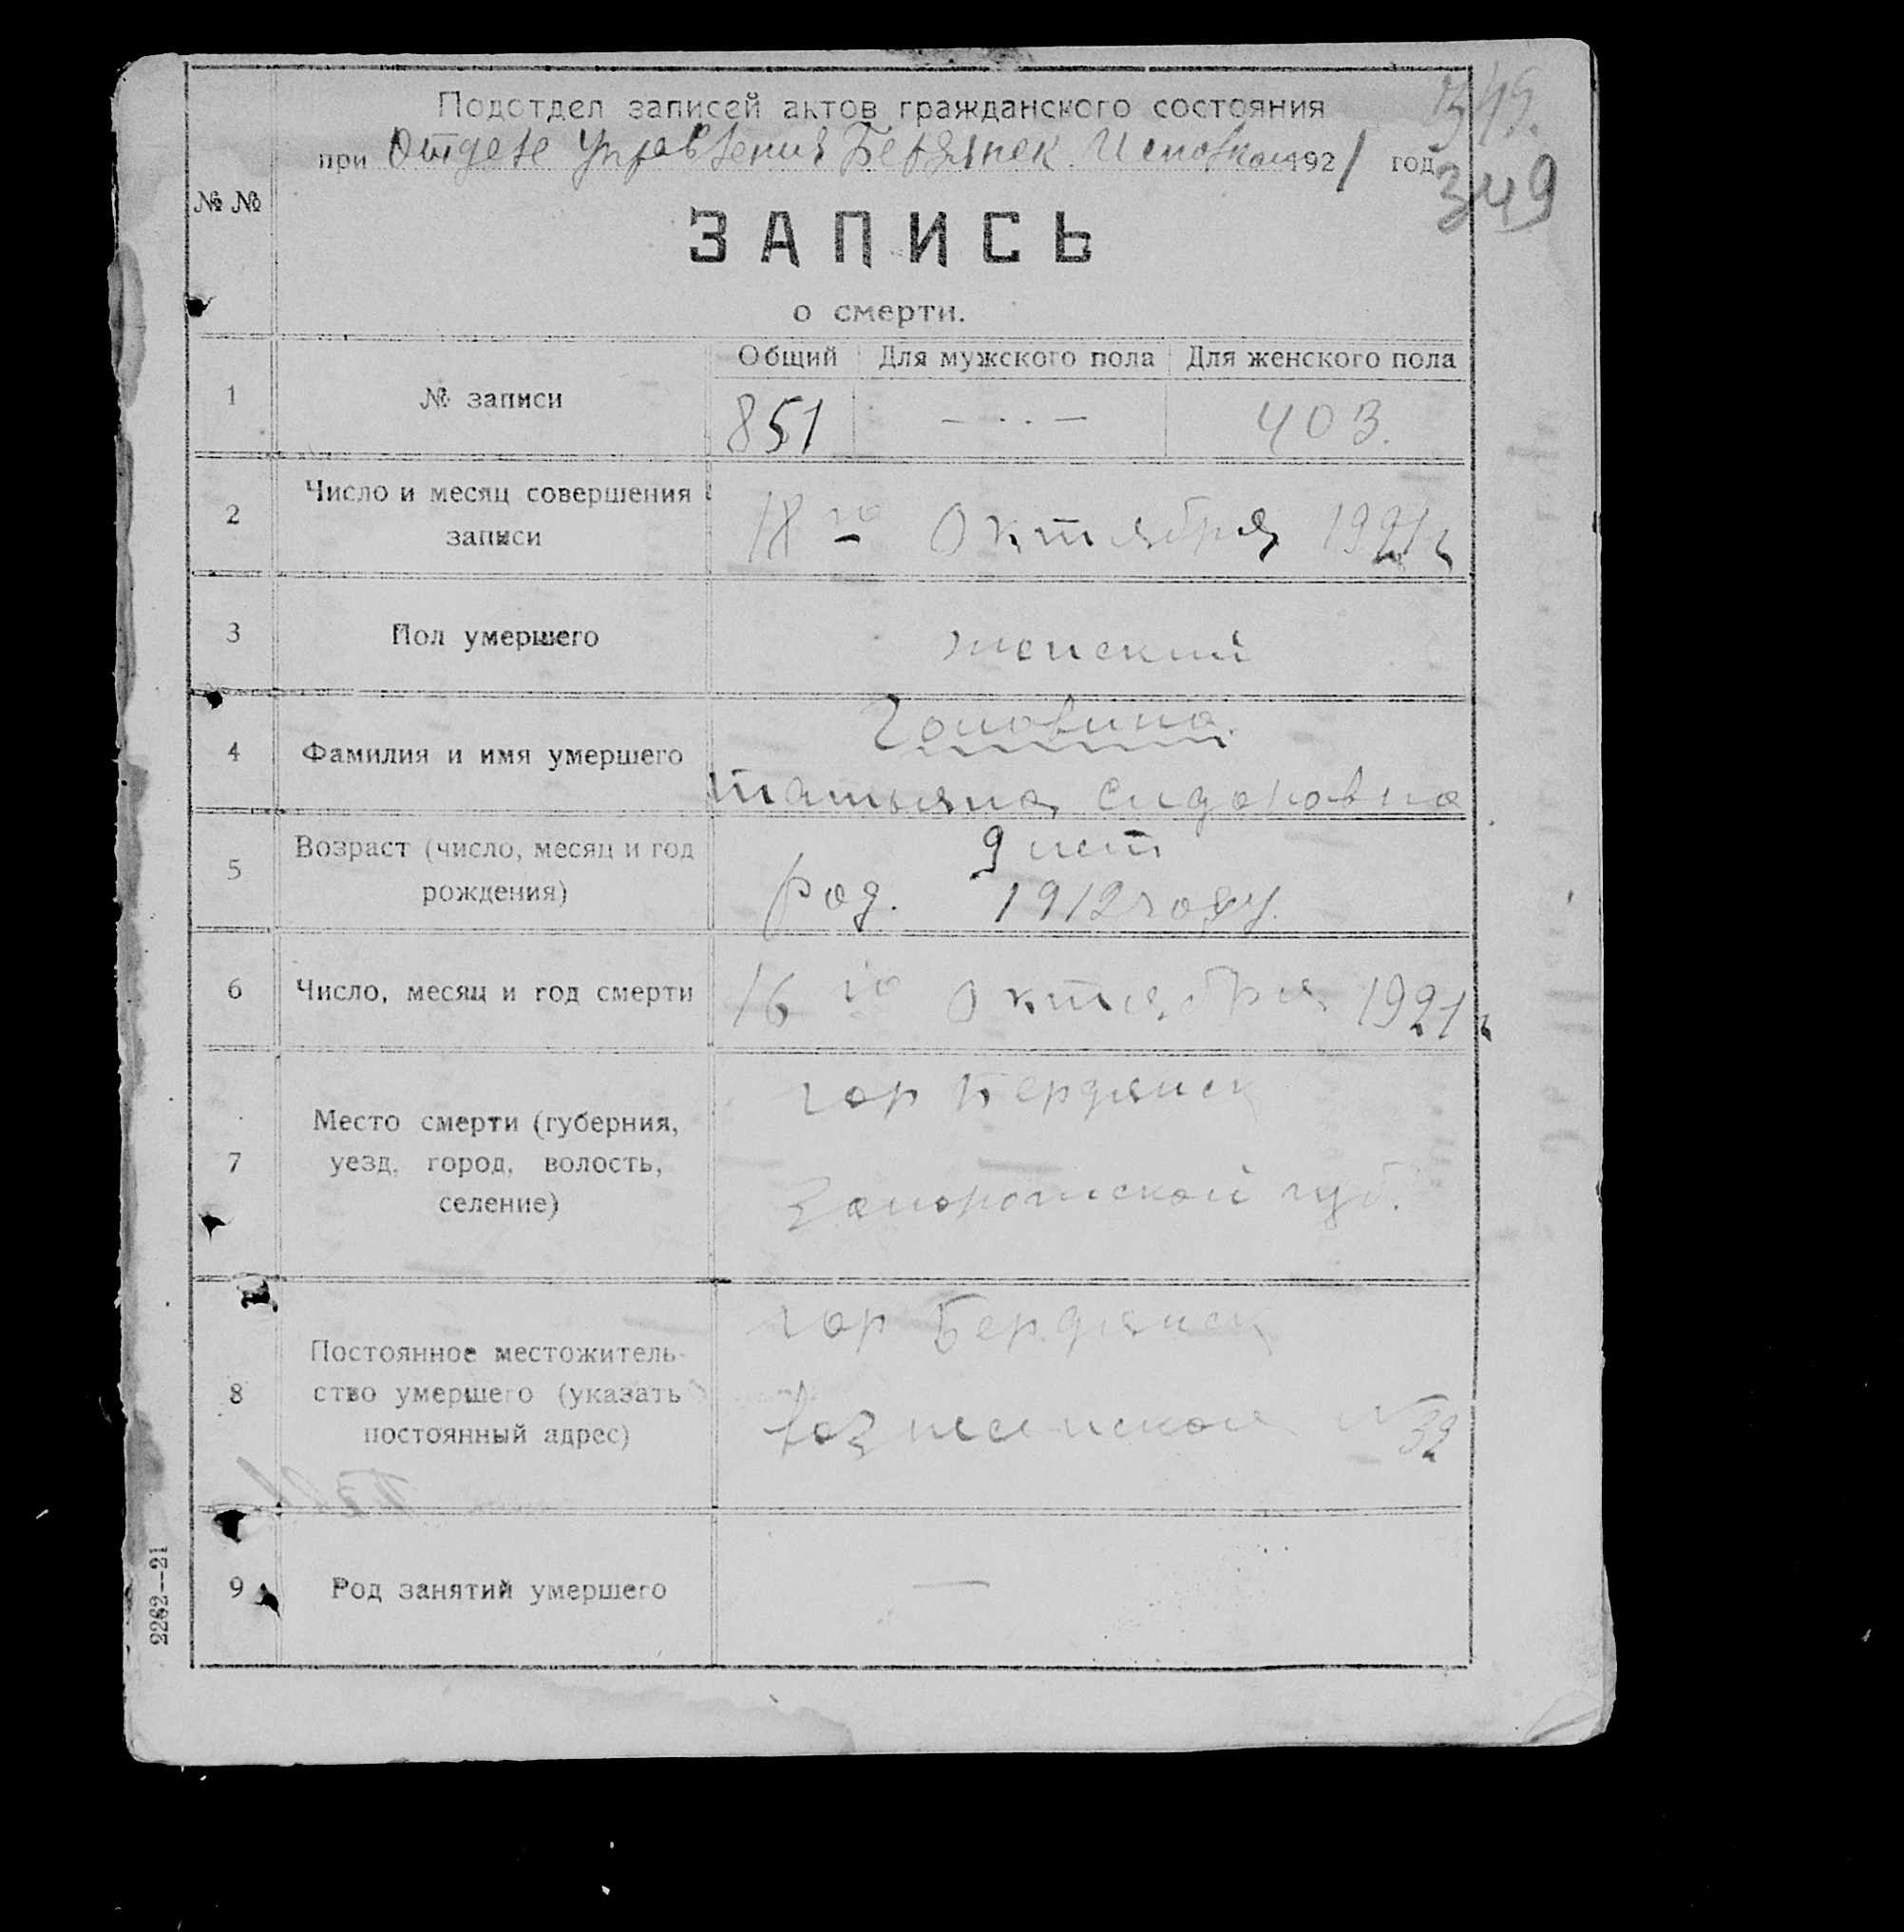 Подотдел записей актов гражданского состояния
при Отделе Управления Бердянск. Исполкома 1921 год
349
№ №
ЗАПИСЬ
о смерти.
Общий Для мужского пола Для женского пола
1 № записи 851 — · · — 403.
2 Число и месяц совершения записи 18го Октября 1921 г
3 Пол умершего женский
4 Фамилия и имя умершего
Татьяна Сидоровна
5 Возраст (число, месяц и год рождения) 9 лет
род. 1912 году.
6 Число, месяц и год смерти 16го Октября 1921 г
7 Место смерти (губерния, уезд, город, волость, селение) гор Бердянск
Запорожской губ.
8 Постоянное местожительство умершего (указать постоянный адрес) гор Бердянск
9 Род занятий умершего —
2262--21